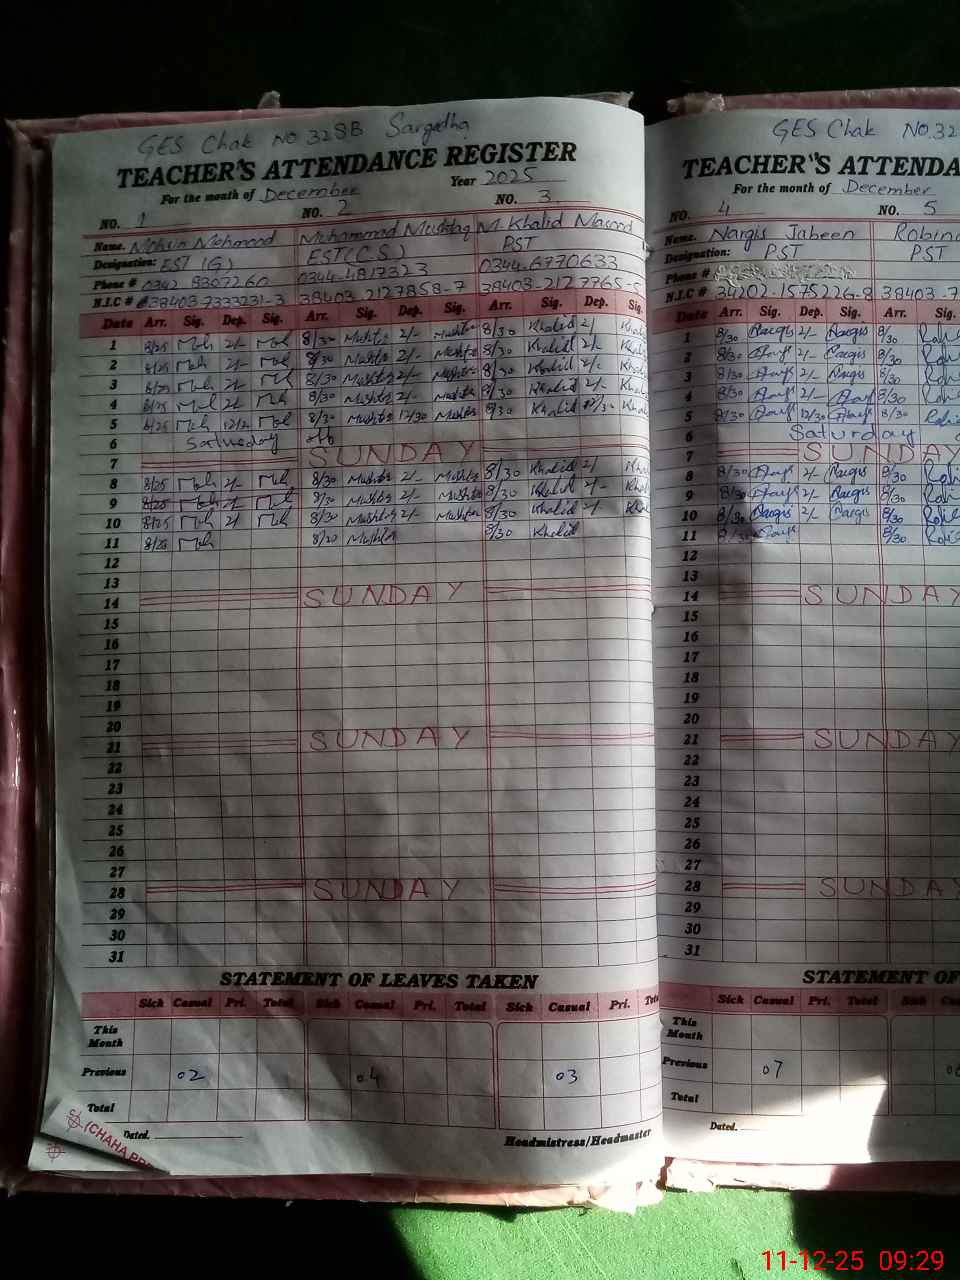 GES Chak NO.32SB Sargodha
TEACHER'S ATTENDANCE REGISTER
For the month of December Year 2025
NO. 1 NO. 2 NO. 3
Name. Mohsin Mehmood Muhammad Mushtaq M Khalid Masood
Designation: EST (G) EST (C.S) PST
Phone # 0342 8307260 0344-4817323 0344-6770633
N.I.C # 38403-7333231-3 38403-2127858-7 38403-2127765-5
Date Arr. Sig. Dep. Sig. Arr. Sig. Dep. Sig. Arr. Sig. Dep. Sig.
1 8/25 Moh 2/- Moh 8/30 Mushtq 2/- Mushtq 8/30 Khalid 2/
2 8/25 Moh 2/- Moh 8/30 Mushtq 2/- Mushtq 8/30 Khalid 2/-
3 8/25 Moh 2/- Moh 8/30 Mushtq 2/- Mushtq 8/30 Khalid 2/-
4 8/25 Moh 2/- Moh 8/30 Mushtq 2/- Mushtq 8/30 Khalid 2/-
5 8/25 Moh 8/30 Mushtq 12/30 Mushtq 8/30 Khalid 12/30
6 Saturday off
7 SUNDAY
8 8/25 Moh 2/- Moh 8/30 Mushtq 2/- Mushtq 8/30 Khalid 2/
9 8/25 Moh 2/- Moh 8/30 Mushtq 2/- Mushtq 8/30 Khalid 2/-
10 8/25 Moh 2/- Moh 8/30 Mushtq 2/- Mushtq 8/30 Khalid 2/
11 8/25 Moh 8/30 Mushtq 8/30 Khalid
12
13
14 SUNDAY
15
16
17
18
19
20
21 SUNDAY
22
23
24
25
26
27
28 SUNDAY
29
30
31
STATEMENT OF LEAVES TAKEN
Sick Casual Pri. Total Sick Casual Pri. Total Sick Casual Pri. Total
This Month
Previous 02 04 03
Total
Dated.
Headmistress/Headmaster
GES Chak NO.32
TEACHER'S ATTENDA
For the month of December
NO. 4 NO. 5
Name. Nargis Jabeen Robina
Designation: PST PST
Phone #
N.I.C # 34202-1575226-8 38403-7
Date Arr. Sig. Dep. Sig. Arr. Sig.
1 8/30 Nargis 2/- Nargis 8/30
2 8/30 Nargis 2/- Nargis 8/30
3 8/30 Nargis 2/- Nargis 8/30
4 8/30 Nargis 2/- Nargis 8/30
5 8/30 Nargis 12/30 Nargis 8/30
6 Saturday
7 SUNDAY
8 8/30 Nargis 2/- Nargis 8/30
9 8/30 Nargis 2/- Nargis 8/30
10 8/30 Nargis 2/- Nargis 8/30
11 8/30 Nargis 8/30
12
13
14 SUNDAY
15
16
17
18
19
20
21 SUNDAY
22
23
24
25
26
27
28 SUNDAY
29
30
31
STATEMENT OF
Sick Casual Pri. Total Sick
This Month
Previous 07
Total
Dated.
11-12-25 09:29